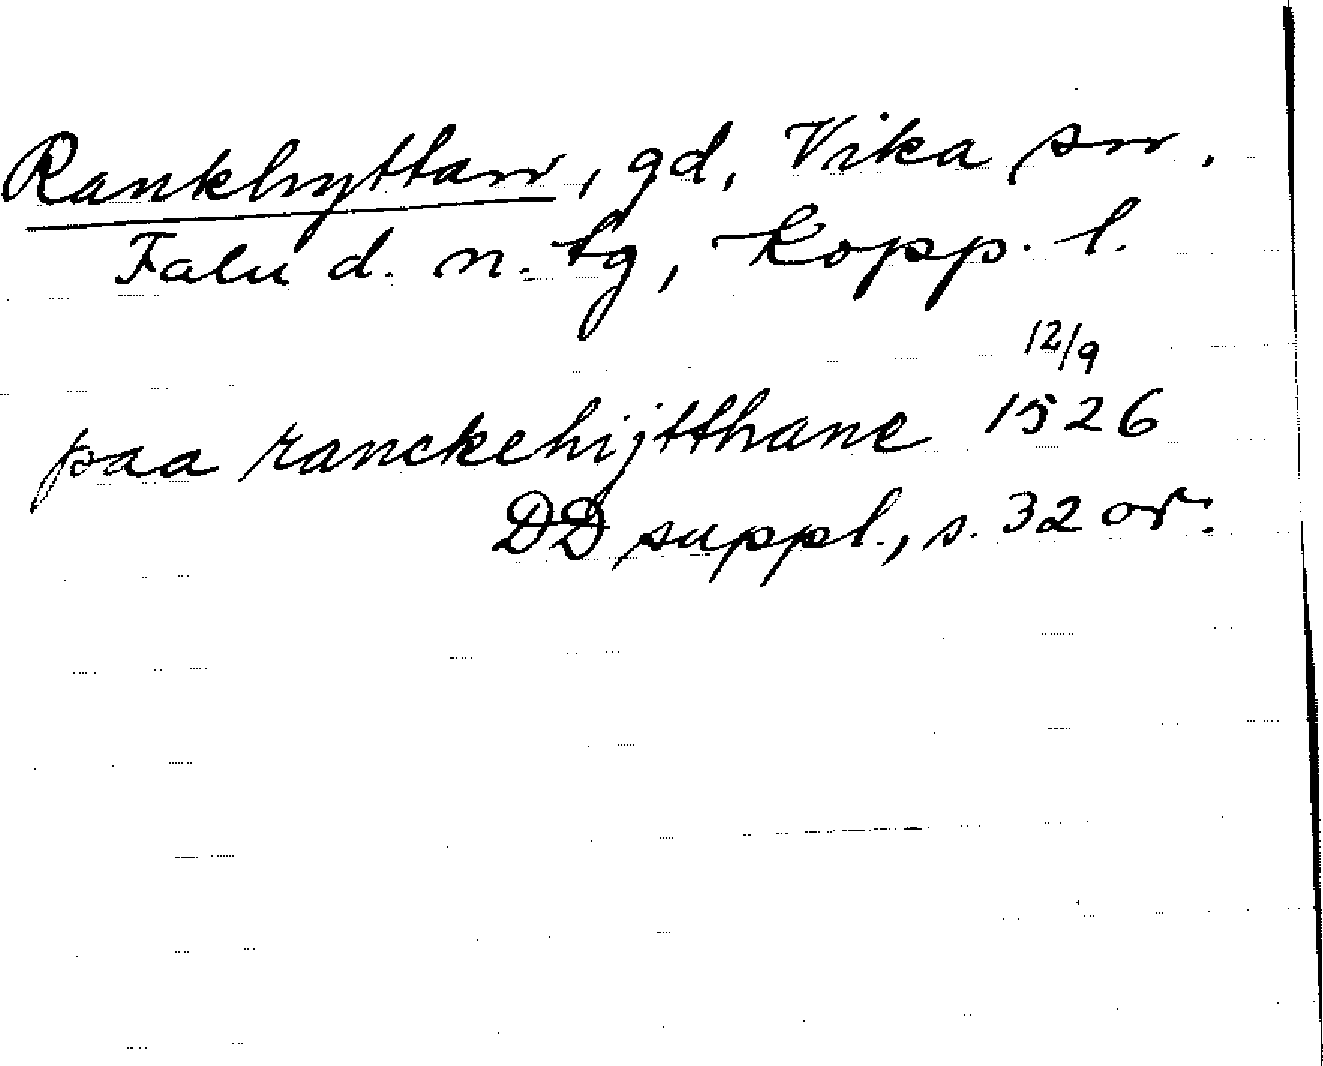 Rankhyttan, gd, Vika sn.
Falu d. n. tg, Kopp. l.
12/9
paa ranckehijtthane 1526
DD suppl., s. 32 or.